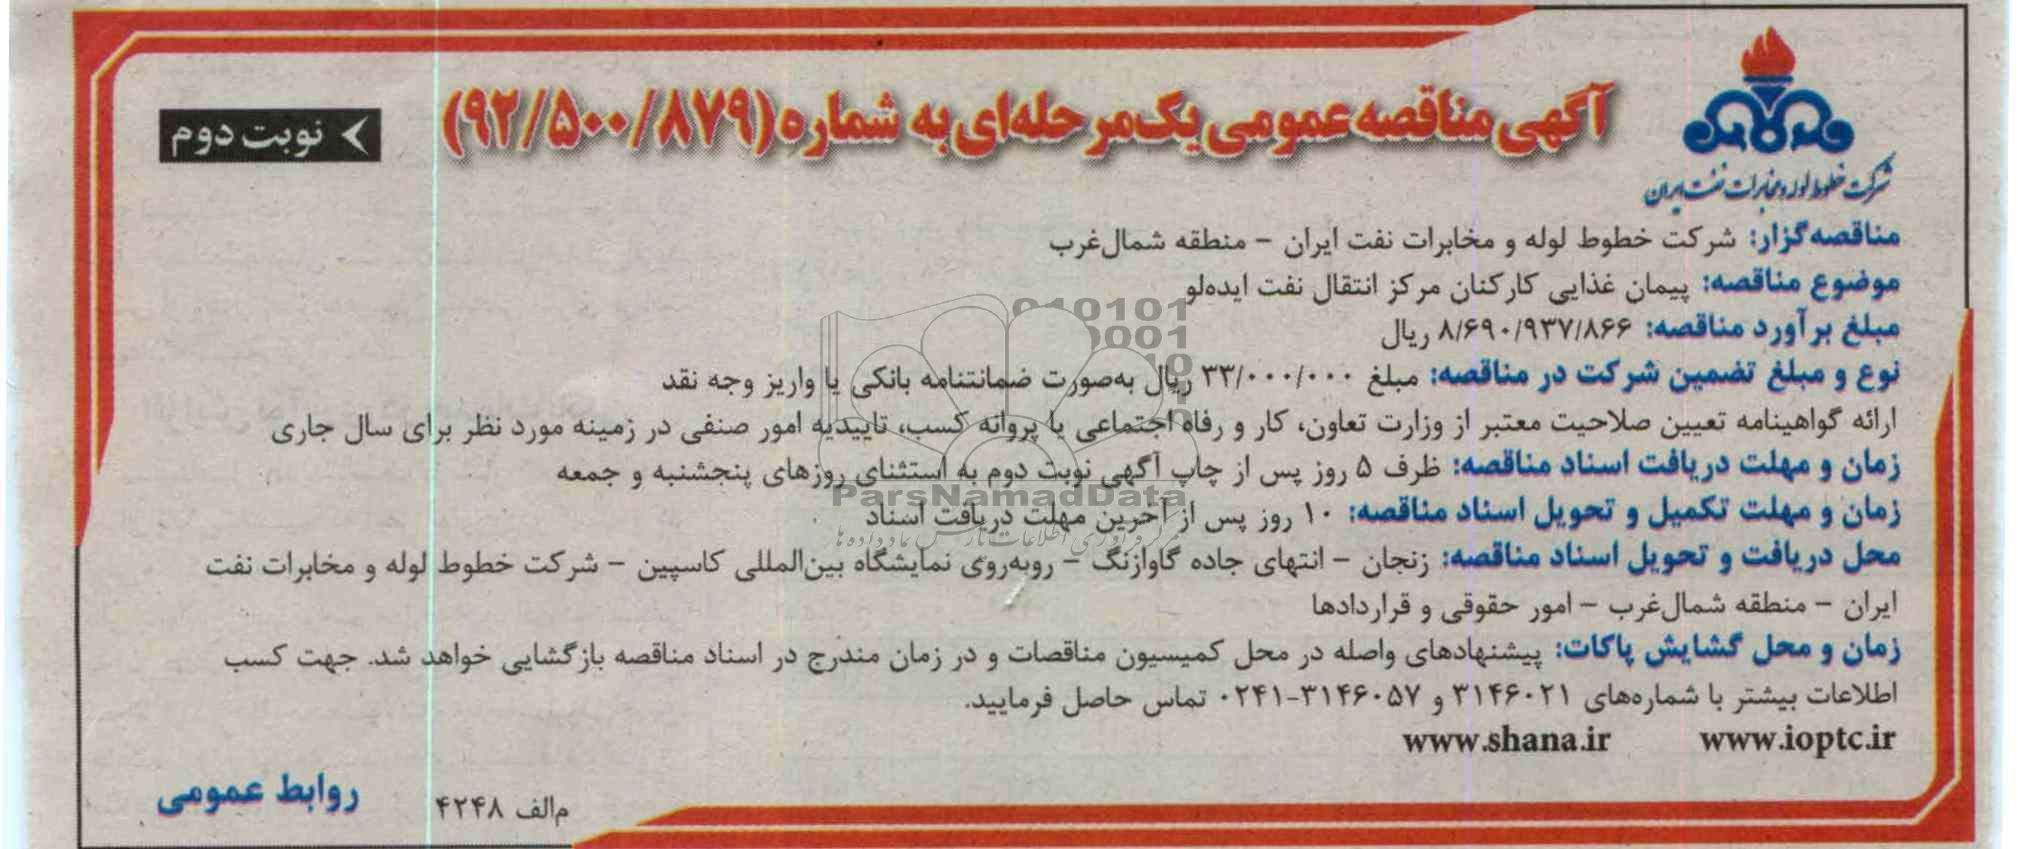 آگهی مناقصه عمومی یک‌مرحله‌ای به شماره (۹۲/۵۰۰/۸۷۹)
نوبت دوم
شرکت خطوط لوله و مخابرات نفت ایران
مناقصه‌گزار: شرکت خطوط لوله و مخابرات نفت ایران - منطقه شمال‌غرب
موضوع مناقصه: پیمان غذایی کارکنان مرکز انتقال نفت ایده‌لو
مبلغ برآورد مناقصه: ۸/۶۹۰/۹۳۷/۸۶۶ ریال
نوع و مبلغ تضمین شرکت در مناقصه: مبلغ ۳۳/۰۰۰/۰۰۰ ریال به‌صورت ضمانتنامه بانکی یا واریز وجه نقد
ارائه گواهینامه تعیین صلاحیت معتبر از وزارت تعاون، کار و رفاه اجتماعی یا پروانه کسب، تاییدیه امور صنفی در زمینه مورد نظر برای سال جاری
زمان و مهلت دریافت اسناد مناقصه: ظرف ۵ روز پس از چاپ آگهی نوبت دوم به استثنای روزهای پنجشنبه و جمعه
زمان و مهلت تکمیل و تحویل اسناد مناقصه: ۱۰ روز پس از آخرین مهلت دریافت اسناد
محل دریافت و تحویل اسناد مناقصه: زنجان - انتهای جاده گاوازنگ - روبه‌روی نمایشگاه بین‌المللی کاسپین - شرکت خطوط لوله و مخابرات نفت
ایران - منطقه شمال‌غرب - امور حقوقی و قراردادها
زمان و محل گشایش پاکات: پیشنهادهای واصله در محل کمیسیون مناقصات و در زمان مندرج در اسناد مناقصه بازگشایی خواهد شد. جهت کسب
اطلاعات بیشتر با شماره‌های ۳۱۴۶۰۲۱ و ۳۱۴۶۰۵۷-۰۲۴۱ تماس حاصل فرمایید.
www.ioptc.ir www.shana.ir
م‌الف ۴۲۴۸
روابط عمومی
ParsNamadData